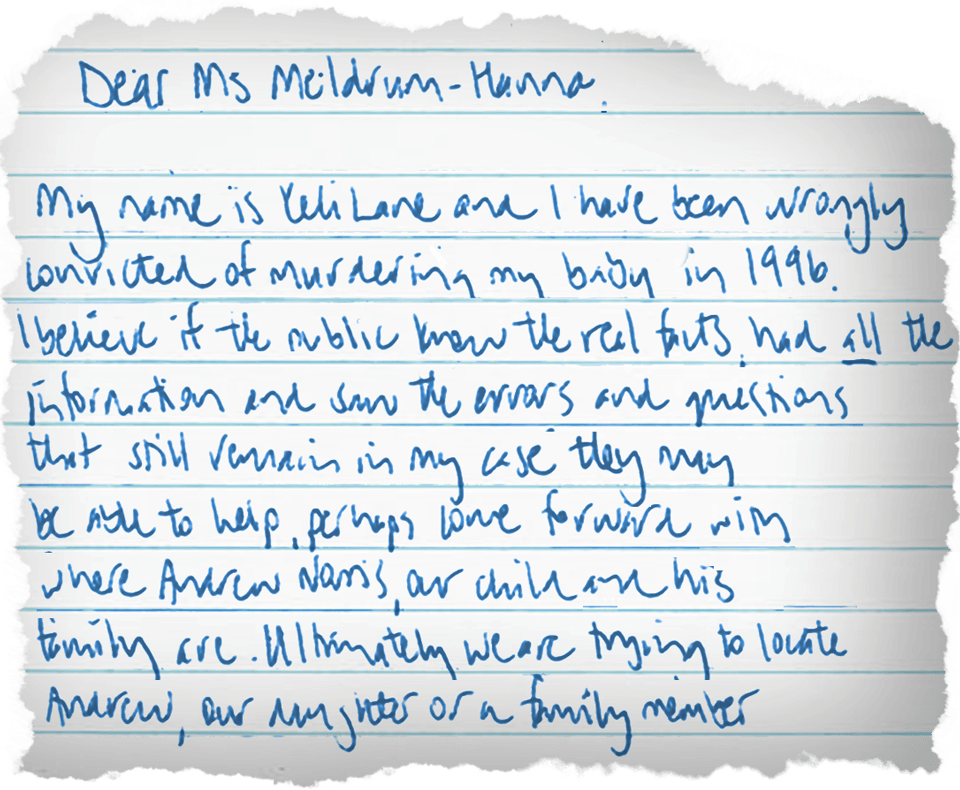 Dear Ms Meldrum-Hanna,
My name is Keli Lane and I have been wrongly
convicted of murdering my baby in 1996.
I believe if the public know the real facts, had all the
information and saw the errors and questions
that still remain in my case they may
be able to help, perhaps come forward with
where Andrew Norris, our child and his
family are. Ultimately we are trying to locate
Andrew, our daughter or a family member